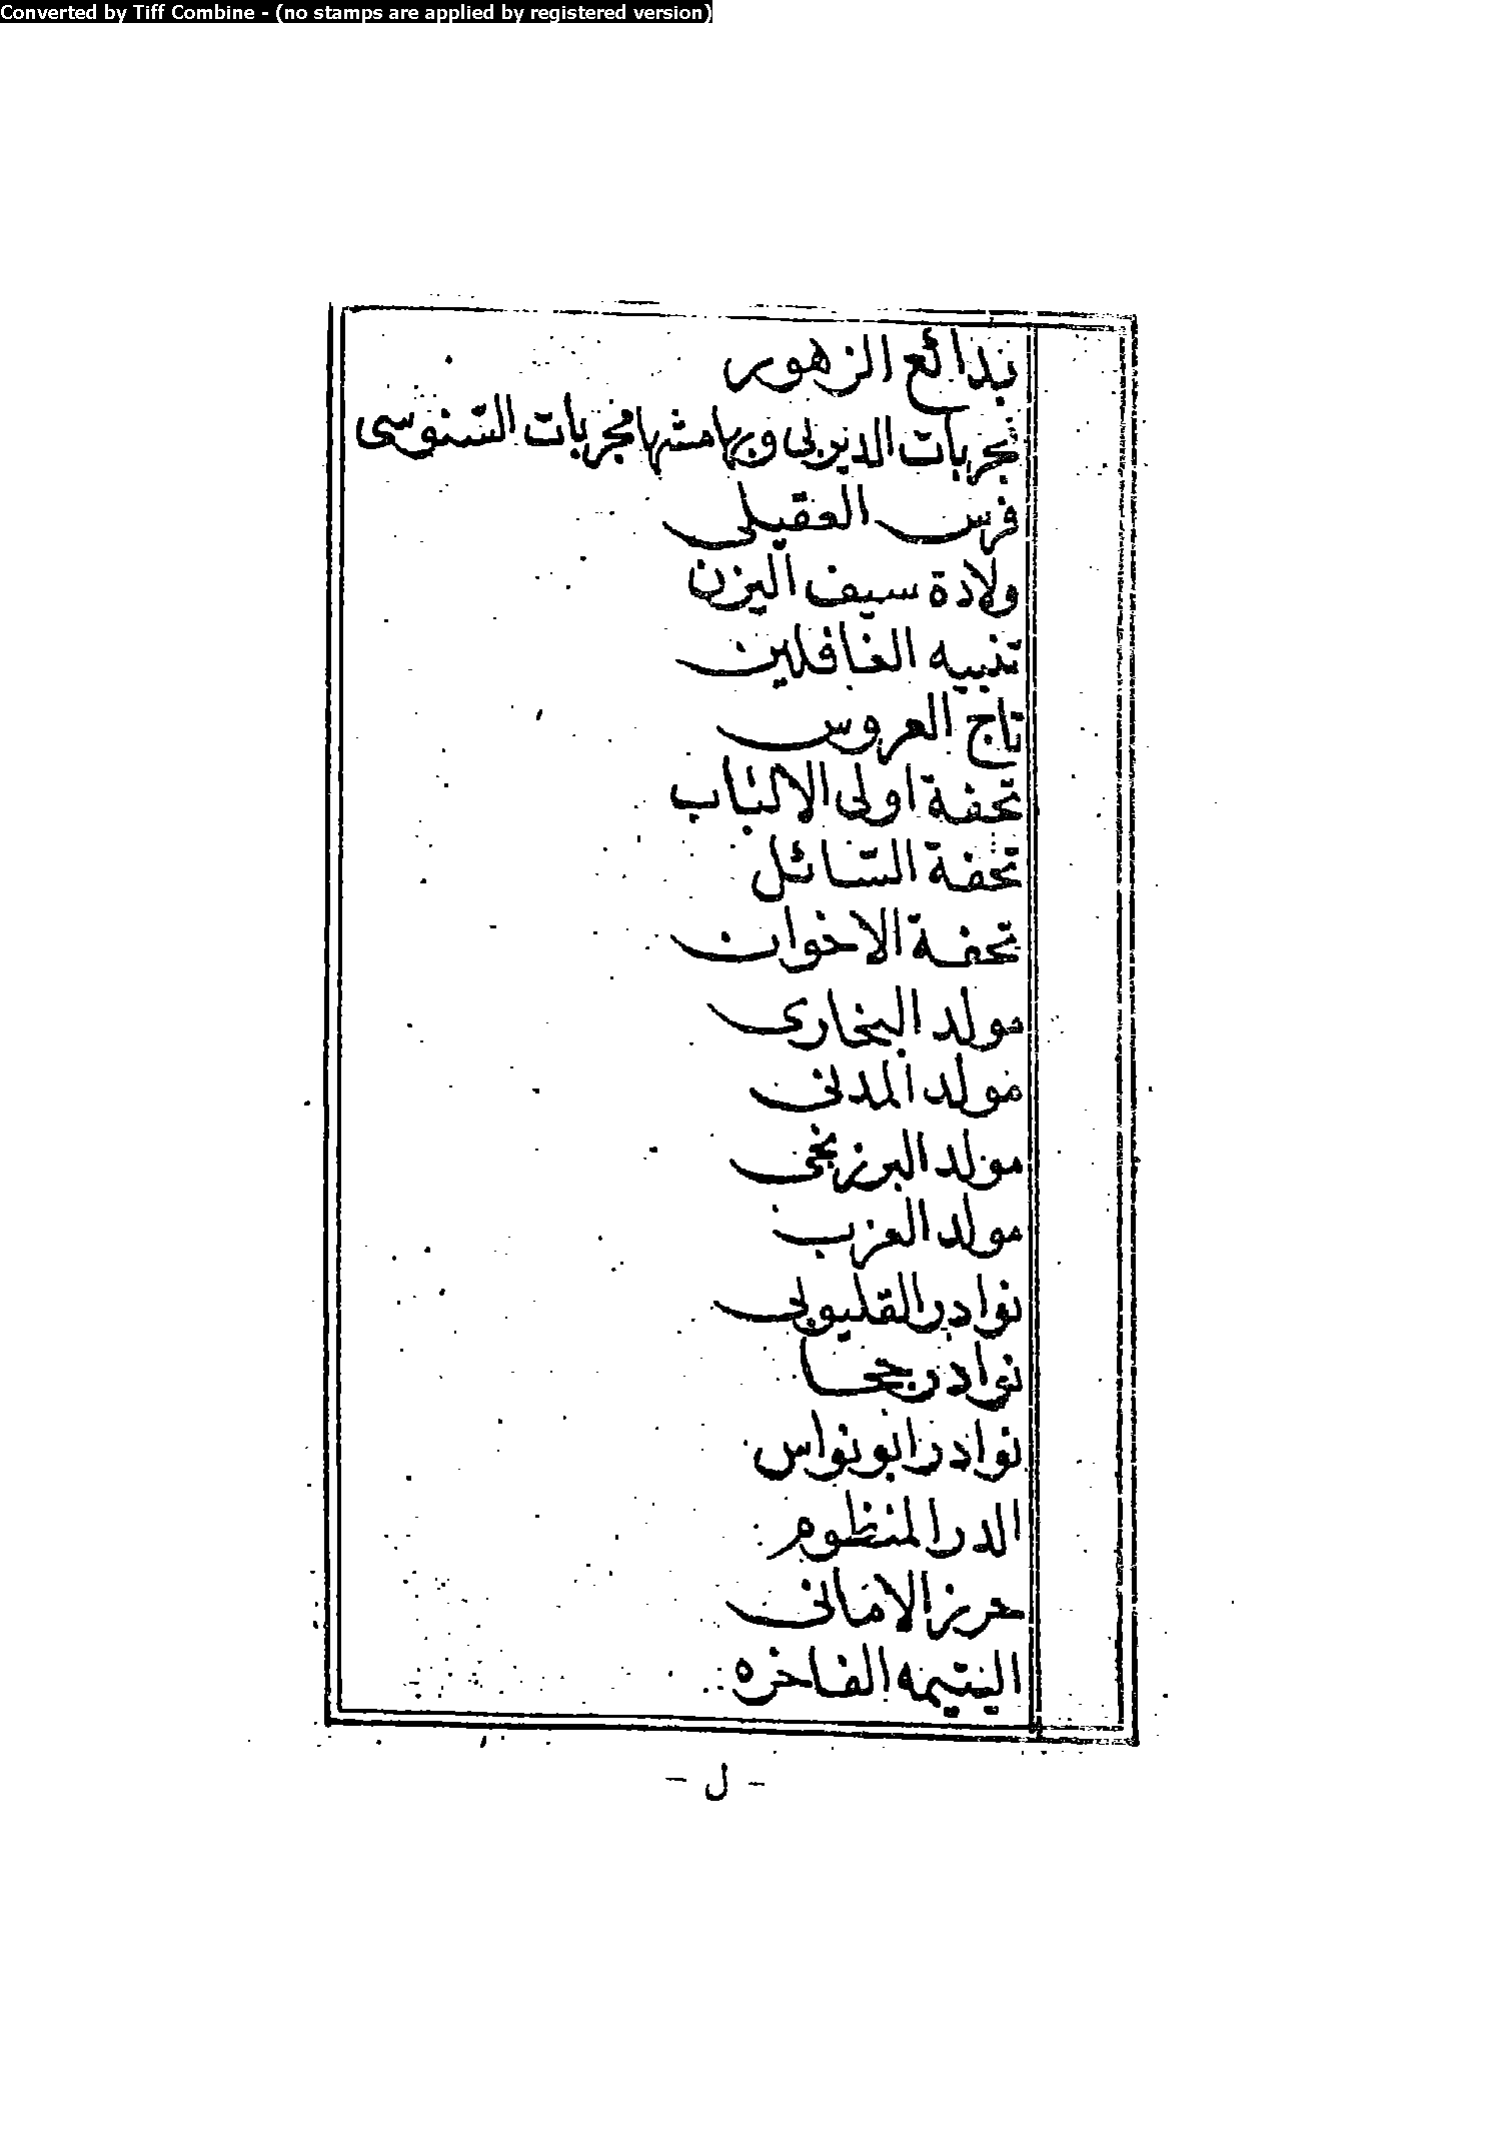 Converted by Tiff Combine - (no stamps are applied by registered version)
بدائع الزهور
مجربات الديربى وبهامشها مجربات السنوسى
فرس العقيلى
ولادة سيف اليزن
تنبيه الغافلين
تاج العروس
تحفة اولى الالباب
تحفة السائل
تحفة الاخوان
مولد البخارى
مولد المدنى
مولد البرزنجى
مولد العزب
نوادر القليوبى
نوادر جحا
نوادر ابو نواس
الدر المنظوم
حرز الامانى
اليتيمه الفاخره
- ل -